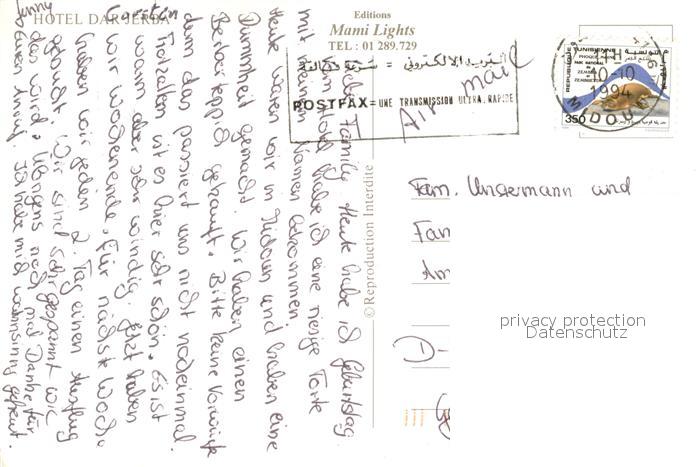 HOTEL DAR JERBA
Editions
Mami Lights
TEL : 01 289.729
البريد الالكتروني = سرعة فائقة
POSTFAX = UNE TRANSMISSION ULTRA. RAPIDE
Air mail
REPUBLIQUE TUNISIENNE
PHOQUE MOINE
PARC NATIONAL
ZEMBRA
ZEMBRETTA
350
10-10
1994
MIDOUN
© Reproduction Interdite
Family. Heute habe ich Geburtstag.
Hotel habe ich eine riesige Torte
mit meinem Namen bekommen.
Heute waren wir in Midoun und haben eine
Dummheit gemacht. Wir haben einen
Berberteppich gekauft. Bitte keine Vorwürfe
denn das passiert uns nicht nocheinmal.
Trotzdem ist es hier sehr schön. Es ist
warm aber sehr windig. Jetzt haben
wir Wochenende. Für nächste Woche
haben wir jeden 2. Tag einen Ausflug
gebucht. Wir sind sehr gespannt wie
das wird. Übrigens noch mal Danke für
Euren Anruf. Ich habe mich wahnsinnig gefreut.
Jenny
Fam. Unsermann und
Fam
privacy protection
Datenschutz